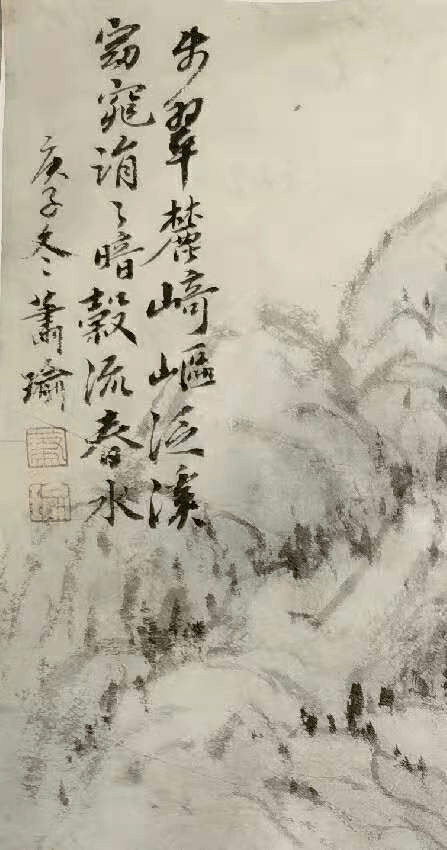 步翠麓崎嶇泛溪
窈窕涓々暗穀流春水
庚子冬蕭瑜